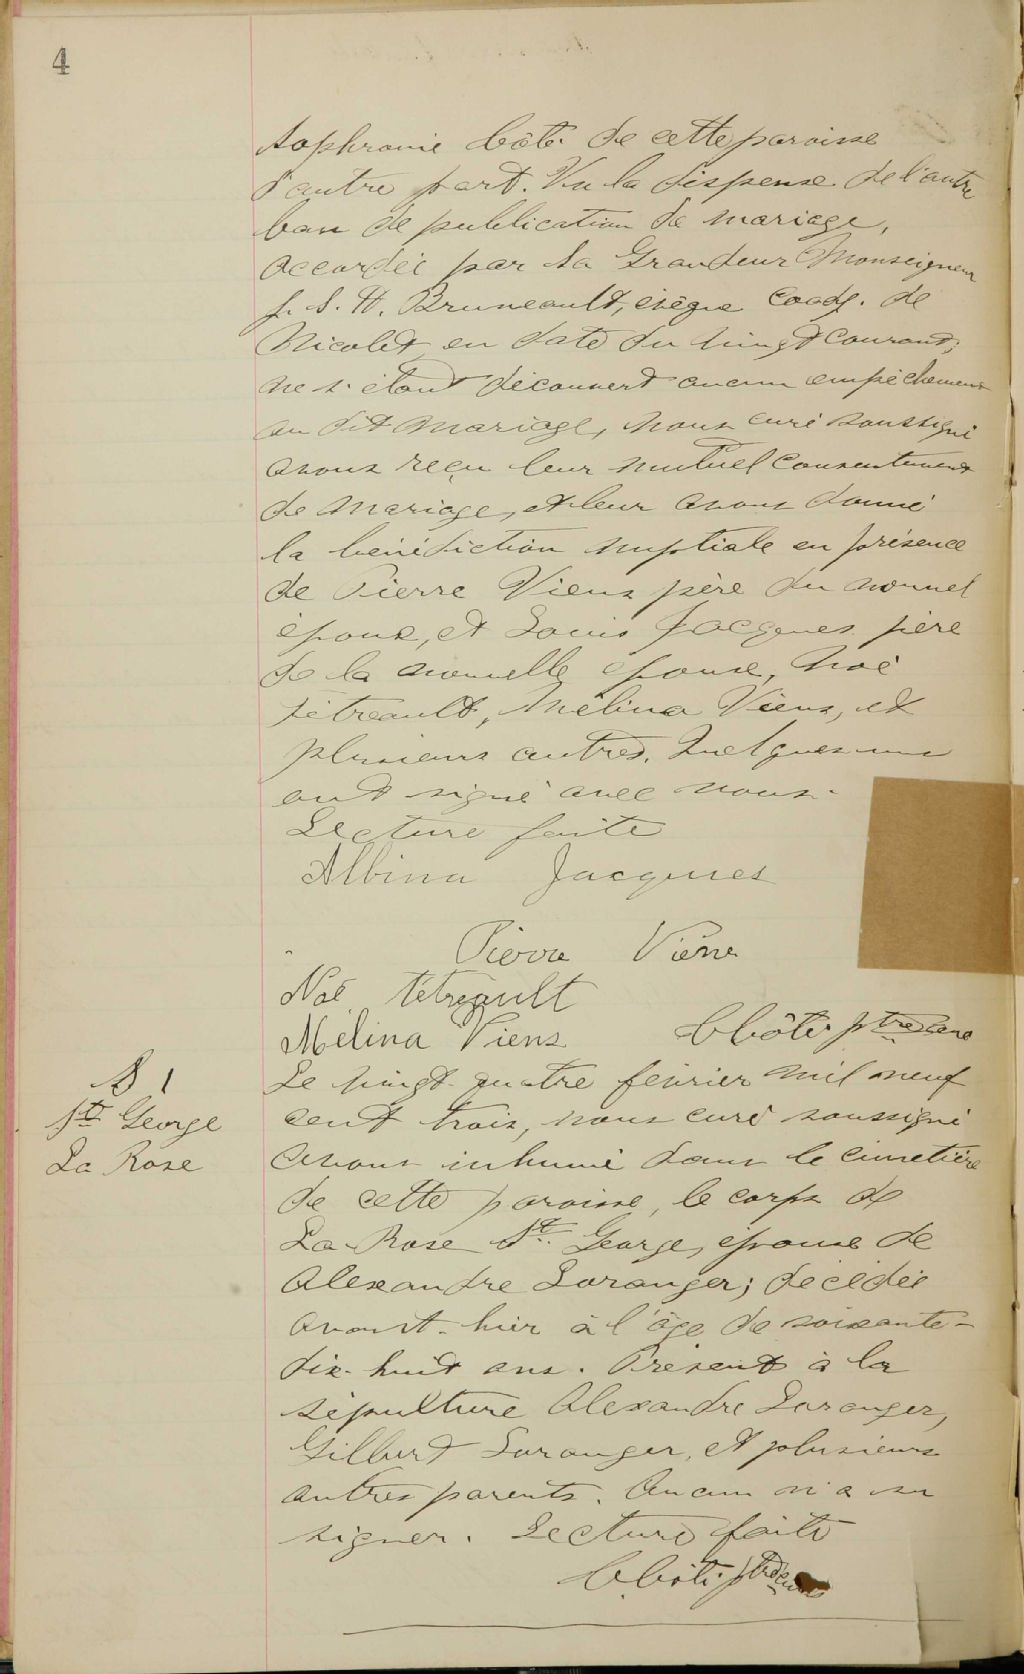 4
Sophronie Côté de cette paroisse
d'autre part. Vu la dispense de l'autre
ban de publication de mariage,
accordée par Sa Grandeur Monseigneur
J. S. H. Bruneault, évêque Coadj. de
Nicolet en date du vingt courant;
ne s'étant découvert aucun empêchement
au dit mariage, nous curé soussigné
avons reçu leur mutuel consentement
de mariage, et leur avons donné
la bénédiction nuptiale en présence
de Pierre Viens père du nouvel
époux, et Louis Jacques père
de la nouvelle épouse, Noé
Tétreault, Mélina Viens, et
plusieurs autres. Quelques uns
ont signé avec nous.
Lecture faite
Albina Jacques
Pierre Viens
Noé Tétreault
Mélina Viens C Côté ptre curé
S 1
St George
La Rose
Le vingt-quatre février mil neuf
cent trois, nous curé soussigné
avons inhumé dans le cimetière
de cette paroisse, le corps de
La Rose St George, épouse de
Alexandre Loranger; décédée
avant-hier à l'âge de soixante-
dix-huit ans. Présent à la
sépulture Alexandre Loranger,
Gilbert Loranger, et plusieurs
autres parents. Aucun n'a su
signer. Lecture faite
C. Côté ptre curé